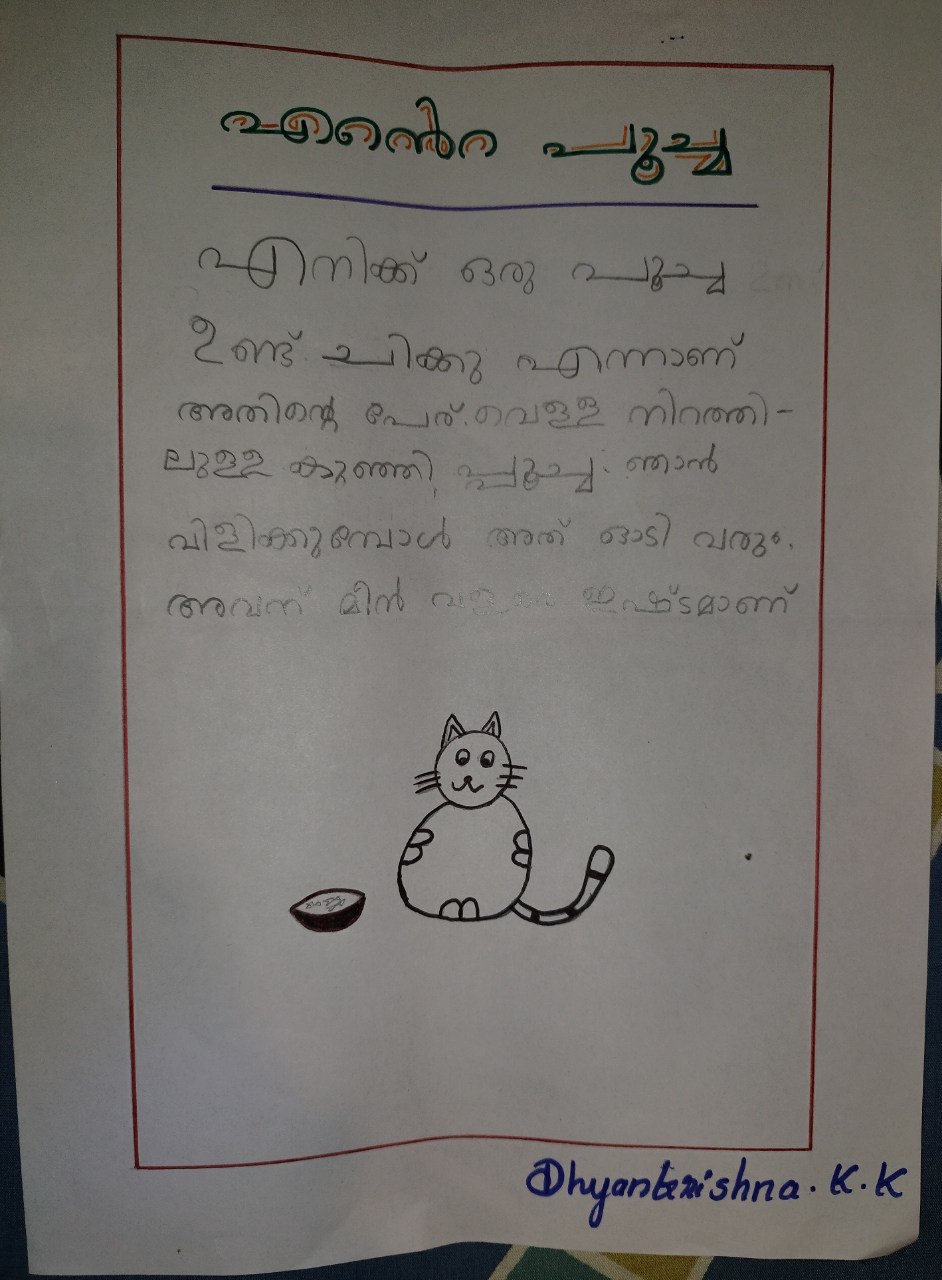 എന്റെ പൂച്ച
എനിക്ക് ഒരു പൂച്ച
ഉണ്ട്. ചിക്കു എന്നാണ്
അതിന്റെ പേര്. വെള്ള നിറത്തി-
ലുള്ള കുഞ്ഞി പ്പൂച്ച. ഞാൻ
വിളിക്കുമ്പോൾ അത് ഓടി വരും.
അവന് മീൻ വളരെ ഇഷ്ടമാണ്
Dhyankrishna. K. K